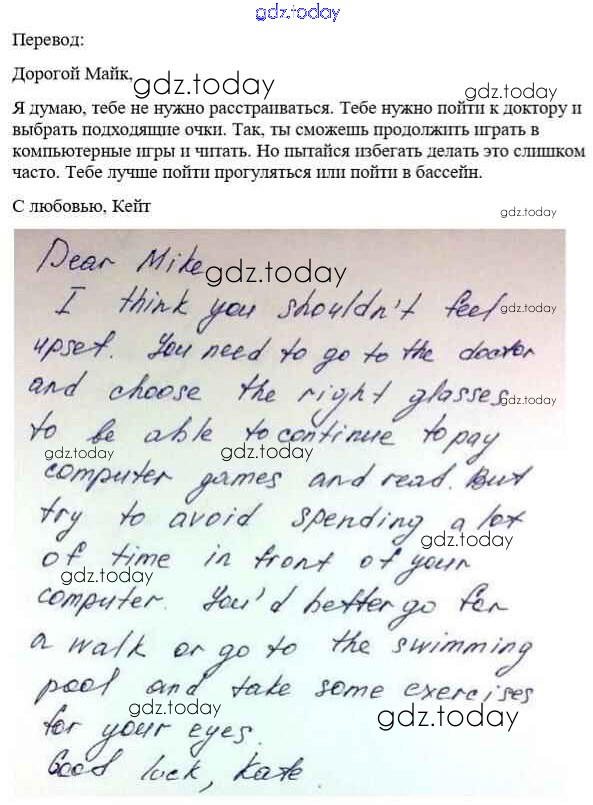 gdz.today
Перевод:
Дорогой Майк,
gdz.today
Я думаю, тебе не нужно расстраиваться. Тебе нужно пойти к доктору и
выбрать подходящие очки. Так, ты сможешь продолжить играть в
компьютерные игры и читать. Но пытайся избегать делать это слишком
часто. Тебе лучше пойти прогуляться или пойти в бассейн.
С любовью, Кейт
gdz.today
Dear Mike
gdz.today
I think you shouldn't feel
gdz.today
upset. You need to go to the doctor
and choose the right glasses
gdz.today
to be able to continue to pay
gdz.today
gdz.today
computer games and read. But
try to avoid spending a lot
gdz.today
of time in front of your
gdz.today
computer. You'd better go for
a walk or go to the swimming
gdz.today
pool and take some exercises
gdz.today
for your eyes.
gdz.today
Good luck, Kate